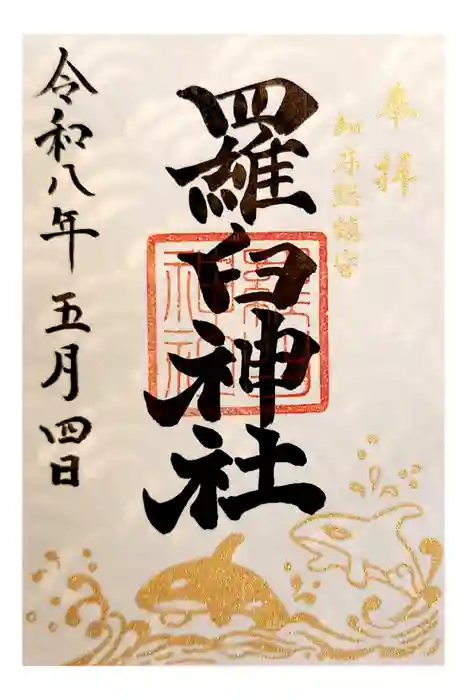 奉拝
知床総鎮守
羅臼神社
羅臼
神社
令和八年五月四日